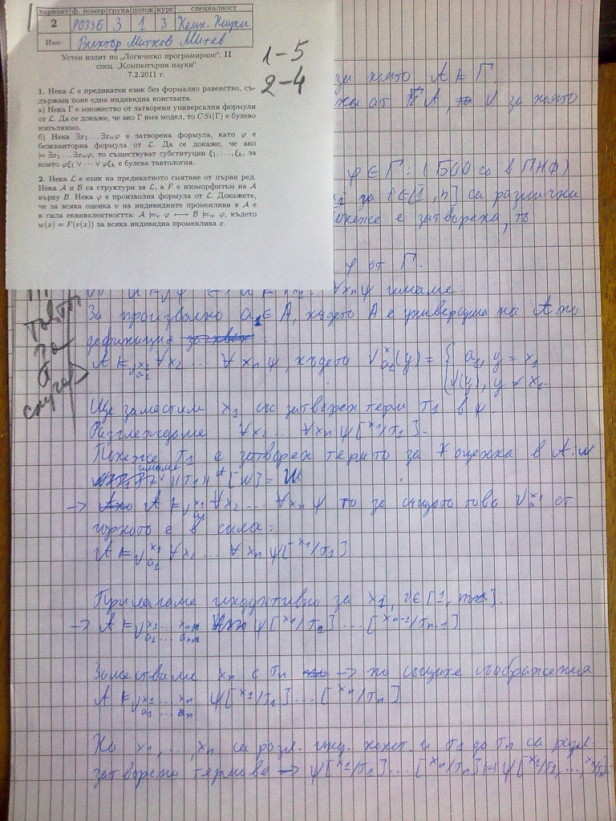 вариант ф. номер група поток курс специалност
2 80336 3 1 3 Комп. Науки
Име: Виктор Митков Митев
Устен изпит по „Логическо програмиране“ II
спец. „Компютърни науки“
7.2.2011 г.
1 – 5
2 – 4
1. Нека ℒ е предикатен език без формално равенство, съ-
държащ поне една индивидна константа.
а) Нека Γ е множество от затворени универсални формули
от ℒ. Да се докаже, че ако Γ има модел, то CSI(Γ) е булево
изпълнимо.
б) Нека ∃x₁ … ∃xₙφ е затворена формула, като φ е
безкванторна формула от ℒ. Да се докаже, че ако
⊨ ∃x₁ … ∃xₙφ, то съществуват субституции ξ₁, …, ξₖ, за
които φξ₁ ∨ ⋯ ∨ φξₖ е булева тавтология.
2. Нека ℒ е език на предикатното смятане от първи ред.
Нека 𝒜 и ℬ са структури за ℒ, а F е изоморфизъм на 𝒜
върху ℬ. Нека φ е произволна формула от ℒ. Докажете,
че за всяка оценка v на индивидните променливи в 𝒜 е
в сила еквивалентността: 𝒜 ⊨ᵥ φ ⟷ ℬ ⊨w φ, където
w(x) = F(v(x)) за всяка индивидна променлива x.
за която A ⊨ Γ
от A, v за която
φ ∈ Γ. (БОО са в ПНФ)
за i ∈ [1, n] са различни
е затворена, то
φ от Γ.
∀xₙ ψ имаме:
За произволно a₁ ∈ A, където A е универсума на A по
дефиниция
A ⊨ v^x₁_a₁ ∀x₂ … ∀xₙ ψ, където v^x₁_a₁(y) = { a₁, y = x₁
v(y), y ≠ x₁
Ще заместим x₁ със затворен терм τ₁ в ψ.
Разглеждаме ∀x₂ … ∀xₙ ψ[x₁/τ₁].
Понеже τ₁ е затворен терм то за ∀ оценка в A: w
имаме
→ A ⊨ v^x₁_a₁ ∀x₂ … ∀xₙ ψ то за същото това v^x₁_a₁ от
горното е в сила:
A ⊨ v^x₁_a₁ ∀x₂ … ∀xₙ ψ[x₁/τ₁]
Прилагаме индуктивно за xᵢ, i ∈ [1, n].
→ A ⊨ v^x₁_a₁ … ψ[x₁/τ₁] … [xₙ₋₁/τₙ₋₁]
Заместваме xₙ с τₙ → по същите съображения
A ⊨ v^x₁_a₁ … ^xₙ_aₙ ψ[x₁/τ₁] … [xₙ/τₙ]
Но x₁, …, xₙ са разл. инд. и τ₁ до τₙ са
затворени термове → ψ[x₁/τ₁] … [xₙ/τₙ] ψ[x₁/τ₁, …, xₙ/τₙ]